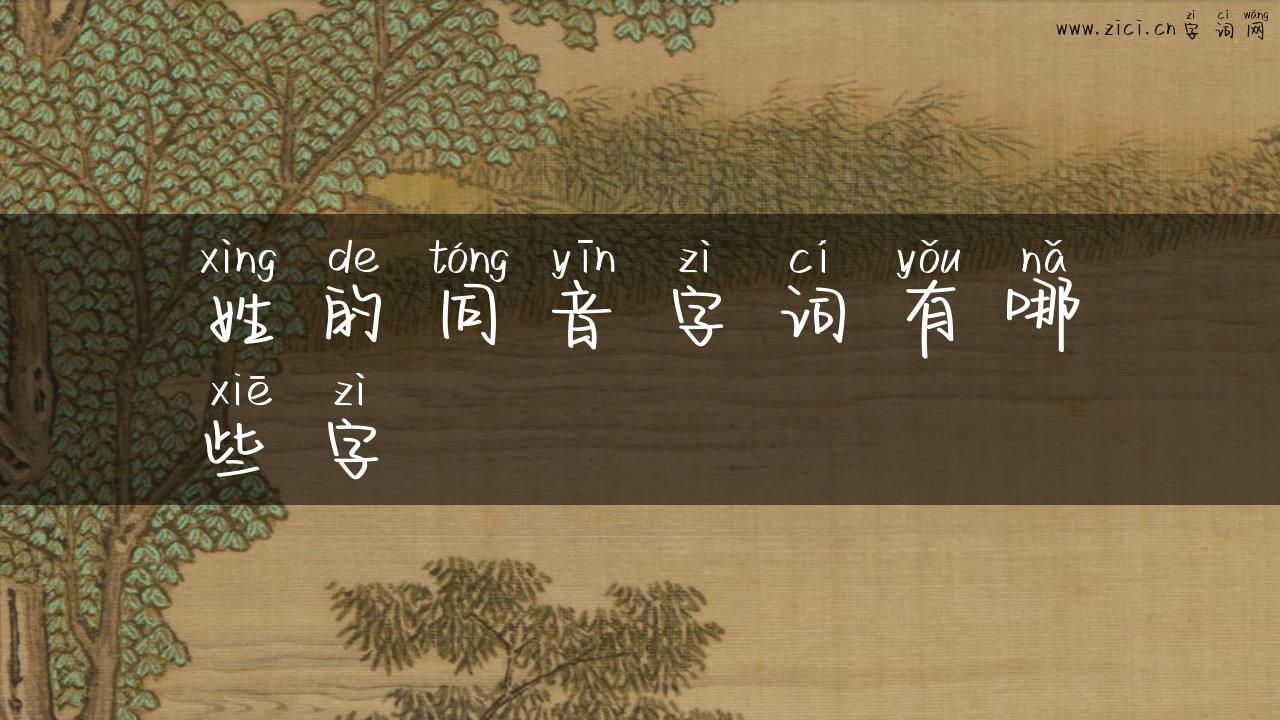 zì cí wǎng
www.zici.cn字词网
xìng de tóng yīn zì cí yǒu nǎ
姓的同音字词有哪
xiē zì
些字